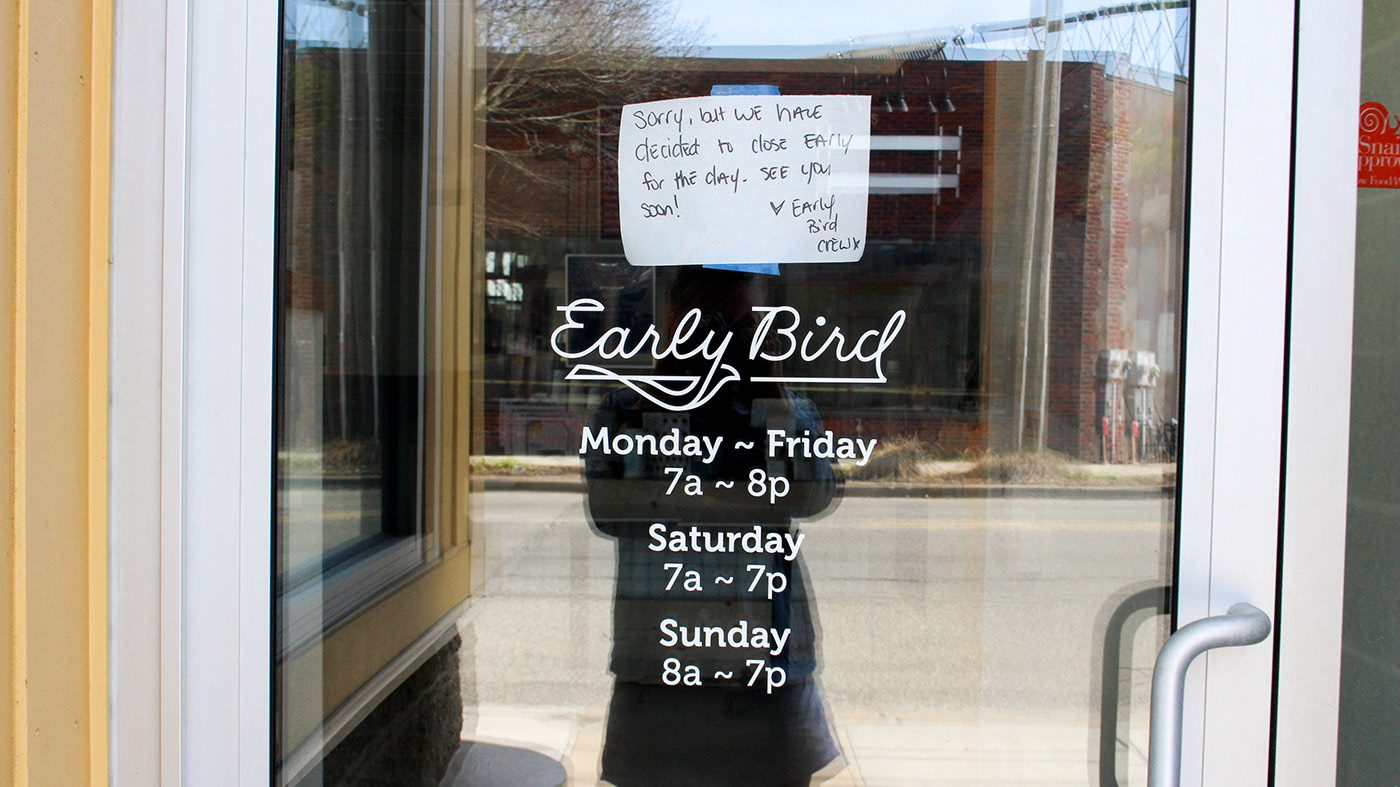 Sorry, but WE HAVE
decided to close EARly
for the day. SEE you
soon!
EARly
Bird
CREW
Early Bird
Monday ~ Friday
7a ~ 8p
Saturday
7a ~ 7p
Sunday
8a ~ 7p
Food